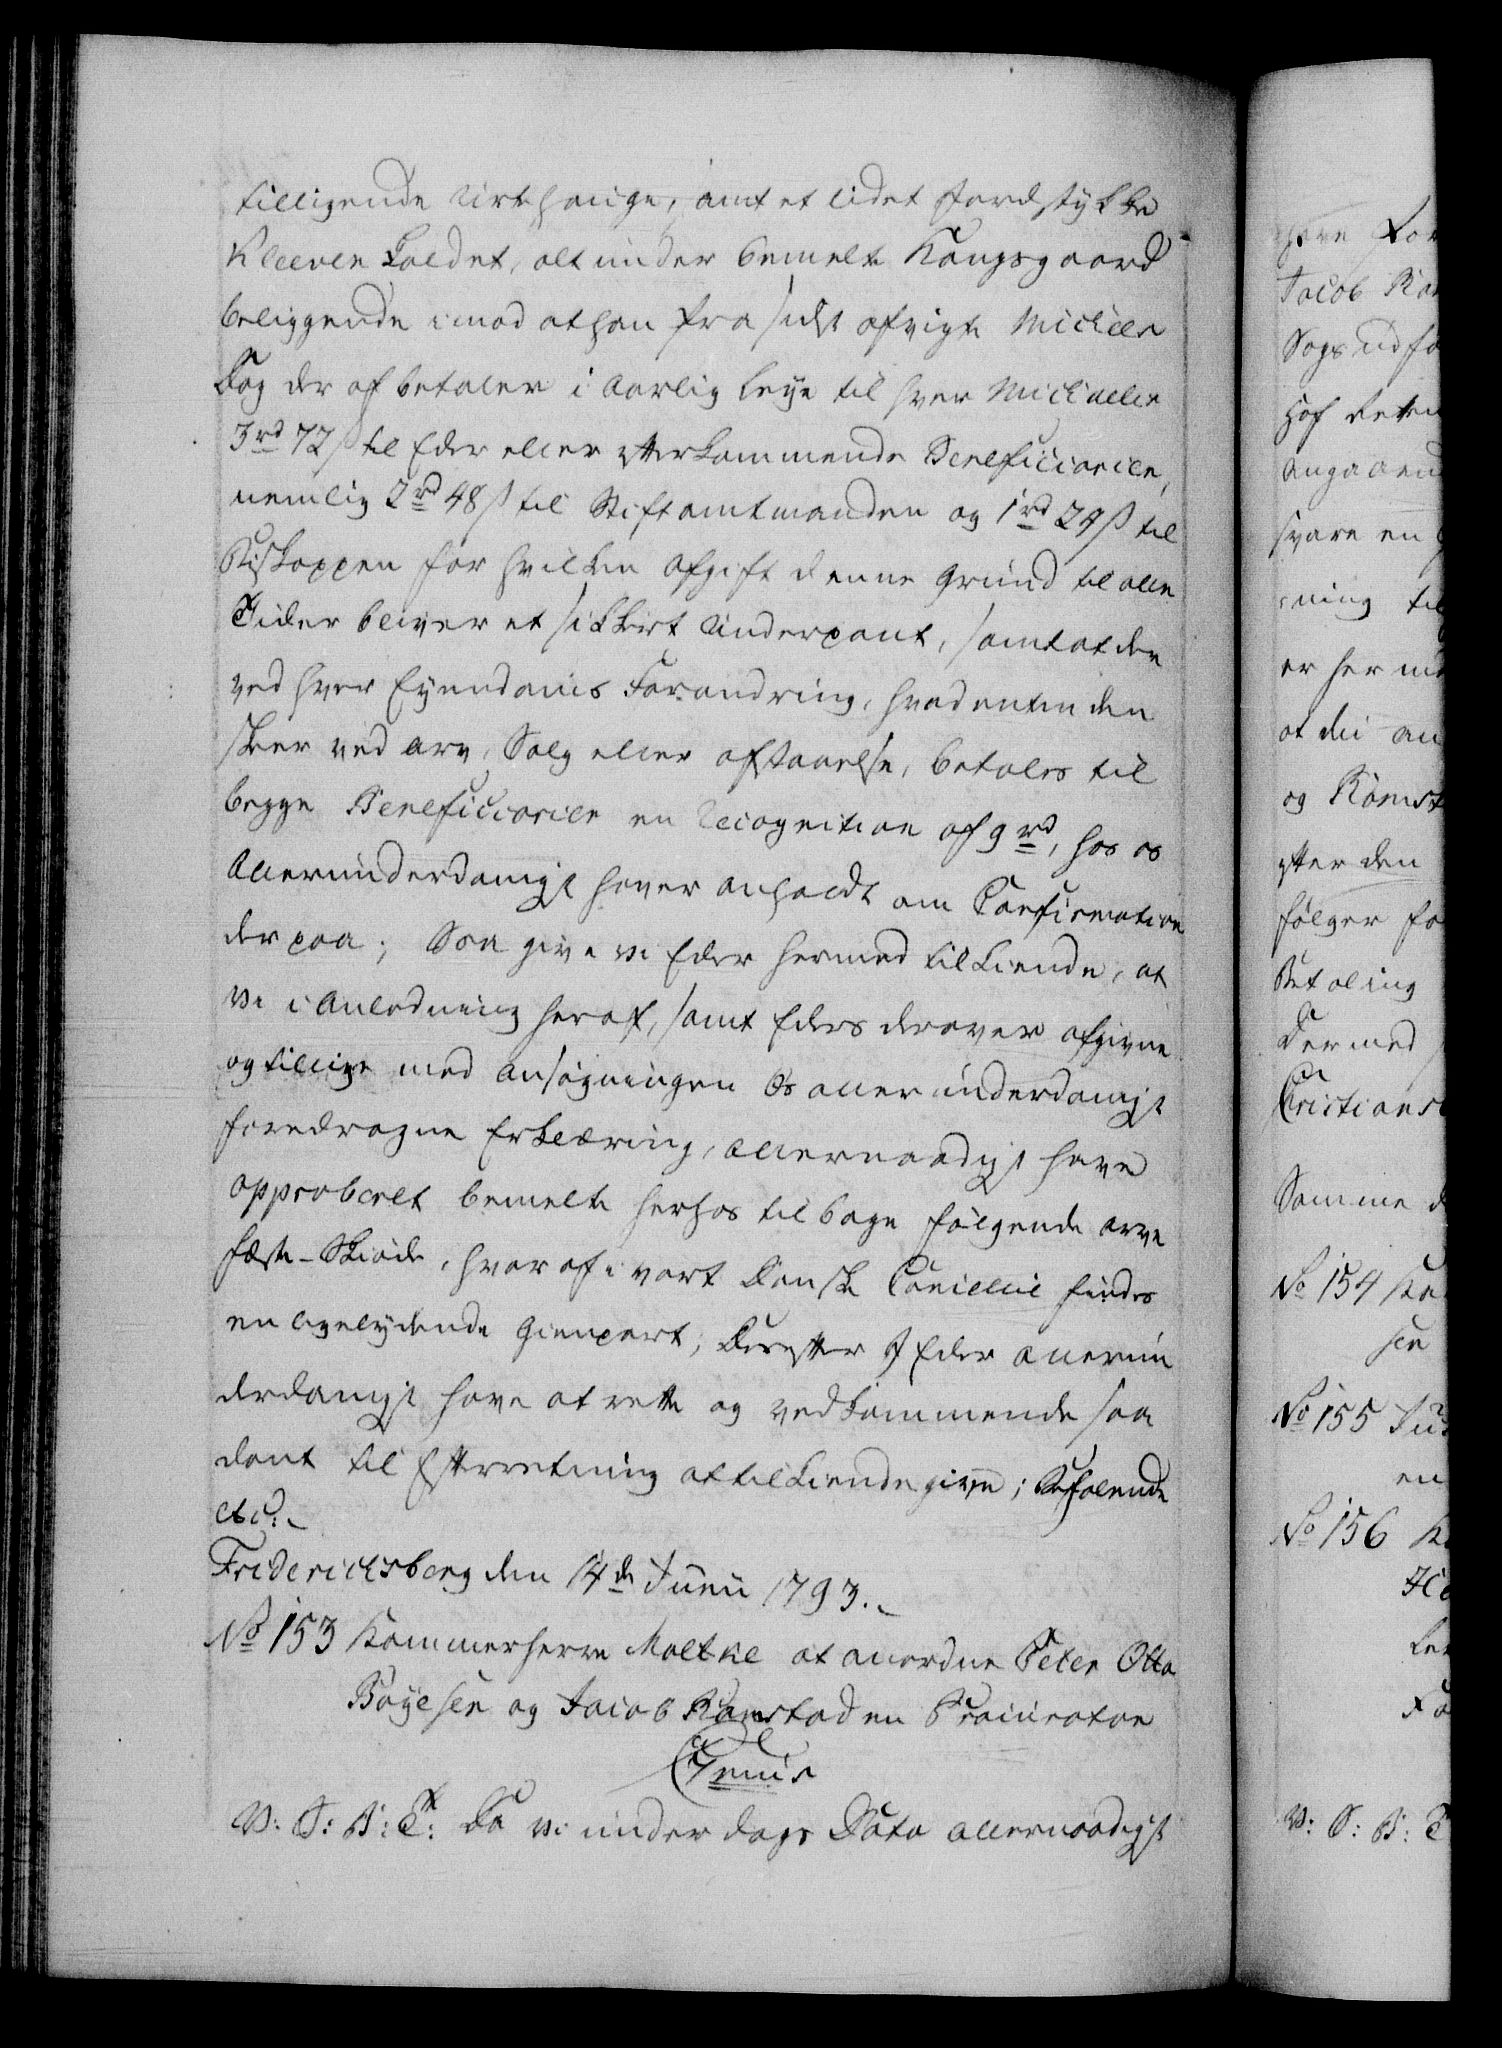 tilligende Urtehauge, samt et lidet Jordstykke
Kleeven kaldet, alt under bemelte Kongsgaard
beliggende imod at han fra sidst afvigte Michels
Dag der af betaler i Aarlig Leye til hver Michaelis
3 rd 72 s til Eder eller efterkommende Beneficiarier,
nemlig 2 rd 48 s til Stiftamtmanden og 1 rd 24 s til
Biskoppen for hvilken Afgift denne Grund til alle
Tider bliver et sikkert Underpant, samt at der
ved hver Eyendoms Forandring, hvad enten den
skeer ved Arv, Salg eller afstaaelse, betales til
begge Beneficiarier en Recognition af 9 rd, hos os
allerunderdanigst haver anholdt om Confirmation
derpaa; Saa give vi Eder hermed tilkiende, at
vi i Anledning heraf, samt Eders derover afgivne
og tillige med ansøgningen Os allerunderdanigst
foredragne Erklæring, allernaadigst have
approberet bemelte herhos tilbage følgende arve
fæste-Skiøde, hvor af i vort Danske Cancellie findes
en ligelydende Gienpart; Derefter I Eder allerun
derdanigst have at rette og vedkommende saa
dant til Efterretning at tilkiendegive; Befalende
etc:-
Friderichsberg den 14de Junii 1793.-
No 153 Kammerherre Moltke at anordne Peter Otto
Boyesen og Jacob Ramstad en Procurator
Gratis
V: G: B: T: Da vi under dags Dato allernaadigst